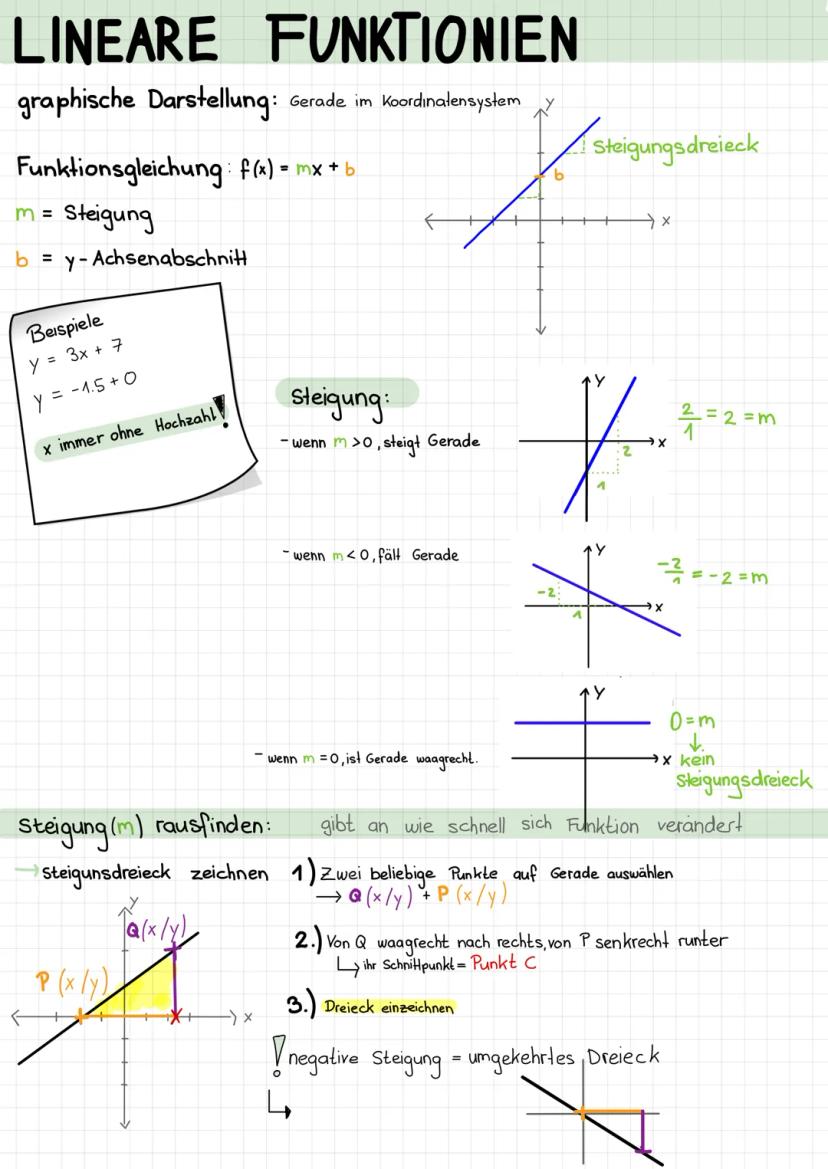 LINEARE FUNKTIONIEN
graphische Darstellung: Gerade im Koordinatensystem
y
Steigungsdreieck
b
x
Funktionsgleichung: f(x) = mx + b
m = Steigung
b = y-Achsenabschnitt
Beispiele
y = 3x + 7
y = -1.5+0
x immer ohne Hochzahl!
Steigung:
- wenn m >0, steigt Gerade
y
x
2
1
2/1 = 2 = m
- wenn m < 0, fält Gerade
y
x
-2
1
-2/1 = -2 = m
- wenn m = 0, ist Gerade waagrecht.
y
x
0 = m
↓
kein
Steigungsdreieck
Steigung(m) rausfinden: gibt an wie schnell sich Funktion verändert
→ steigunsdreieck zeichnen
1) Zwei beliebige Punkte auf Gerade auswählen
→ Q (x/y) + P (x/y)
2.) Von Q waagrecht nach rechts, von P senkrecht runter
↳ ihr Schnittpunkt = Punkt C
3.) Dreieck einzeichnen
y
Q(x/y)
P (x/y)
x
! negative Steigung = umgekehrtes Dreieck
↳